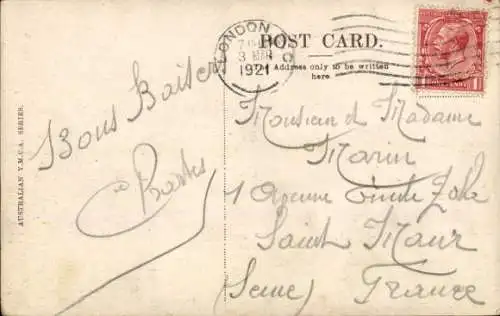 LONDON
3 MAR
1921
POST CARD.
Address only to be written
here.
AUSTRALIAN Y.M.C.A. SERIES.
Bons Baisers
Charles
Monsieur et Madame
Marin
1 Avenue Emile Zola
Saint Maur
(Seine) France